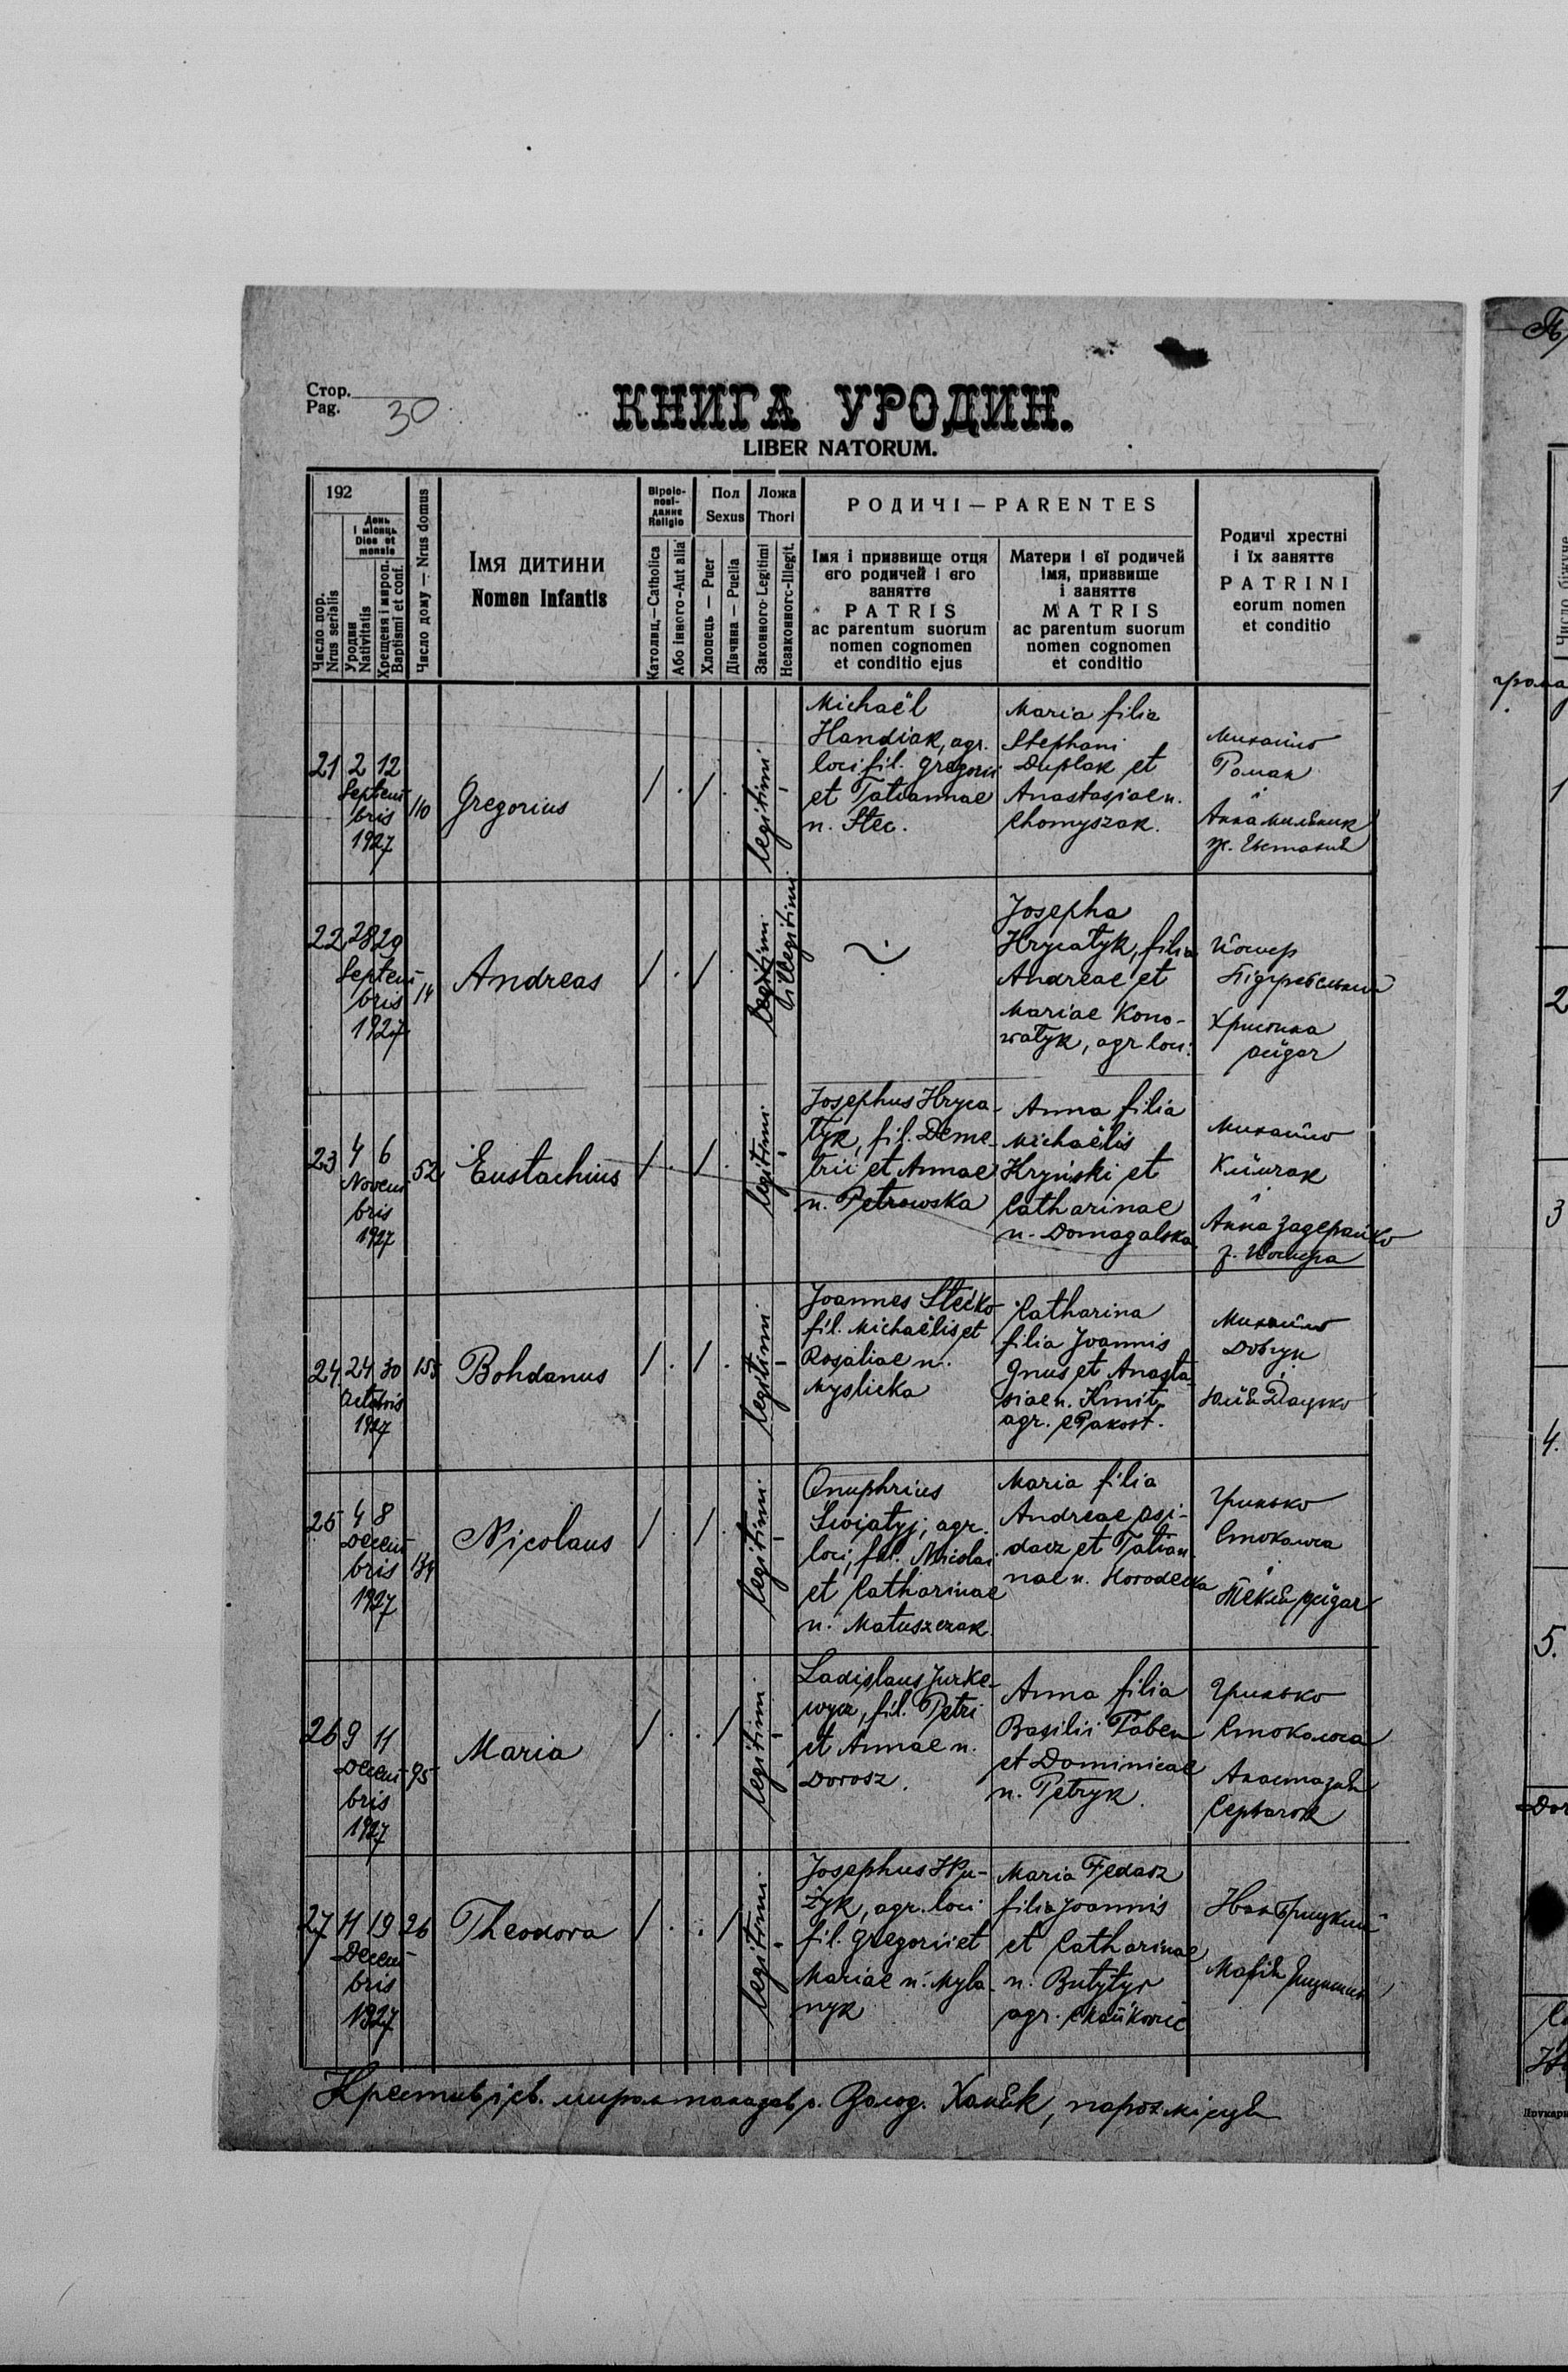 Стор.
Pag. 30
КНИГА УРОДИН.
LIBER NATORUM.
192
Число пор.
Nrus serialis
День
і місяць
Dies et
mensis
Уродин
Nativitatis
Хрещеня і мироп.
Baptismi et conf.
Число дому — Nrus domus
Імя дитини
Nomen Infantis
Віроіс-
пові-
данне
Religio
Католиц.—Catholica
Або інного-Aut alia
Пол
Sexus
Хлопець — Puer
Дівчина — Puella
Ложа
Thori
Законного-Legitimi
Незаконного-Illegit.
РОДИЧІ — PARENTES
Імя і призвище отця
єго родичей і єго
заняттє
PATRIS
ac parentum suorum
nomen cognomen
et conditio ejus
Матери і єї родичей
імя, призвище
і заняттє
MATRIS
ac parentum suorum
nomen cognomen
et conditio
Родичі хрестні
і їх заняттє
PATRINI
eorum nomen
et conditio
21 2 12
Septem
bris
1927
110
Gregorius
legitimi
Michaël
Handiak, agr.
loci fil. Gregorii
et Tatiannae
n. Stec.
Maria filia
Stephani
Duplak et
Anastasiae n.
Chomyszak.
Михайло
Роман
Анна Мельник
22 28 29
Septem-
bris
1927
14
Andreas
legitimi
illegitimi
Josepha
Hrycatyk, filia
Andreae et
Mariae Kono-
watyk, agr. loci.
Йосиф
Христина
23 4 6
Novem
bris
1927
52
Eustachius
legitimi
Josephus Hryca-
tyk, fil. Deme-
trii et Annae
n. Petrowska
Anna filia
Michaëlis
Hryński et
Catharinae
n. Domagalska
Михайло
Климчак
Анна Задерайко
ж. Йосифа
24. 24 30
Octobris
1927
155
Bohdanus
legitimi
Joannes Stećko
fil. Michaëlis et
Rosaliae n.
Myslicka
Catharina
filia Joannis
Gnus et Anasta
siae n. Kmit,
agr. e Pakost.
Михайло
Довгун
Юлія Дацько
25 4 8
Decem
bris
1927
134
Nicolaus
legitimi
Onuphrius
Świątyj, agr.
loci, fil. Nicolai
et Catharinae
n. Matuszczak
Maria filia
Andreae Osi-
dacz et Tatian
nae n. Horodecka
Гринько
Стоколоса
Текля
26 9 11
Decem-
bris
1927
95
Maria
legitimi
Ladislaus Jurke-
wycz, fil. Petri
et Annae n.
Dorosz.
Anna filia
Basilii Faben
et Dominicae
n. Petryk.
Гринько
Стоколоса
Анастазія
27 11 19
Decem
bris
1927
26
Theodora
legitimi
fil. Gregorii et
Mariae n. Myla-
nyk
Maria Fedasz
filia Joannis
et Catharinae
n. Butytyr
Марія
Крестив і св. миром помазав о. Волод. Ханик, парох місця